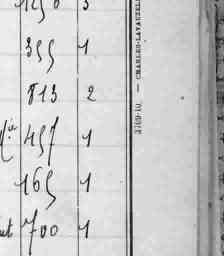 1250 3
355 1
813 2
457 1
165 1
700 1
3769-10. — CHARLES-LAVAUZEL